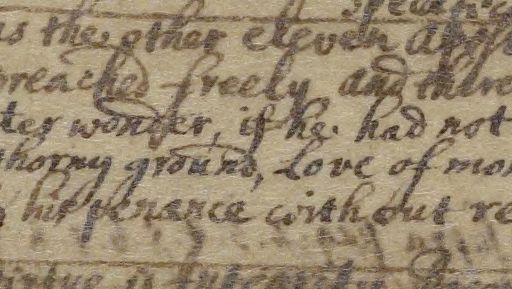 as the other eleven
preached freely and there
wonder, if he had not
thorny ground, Love of
his penance without re
is